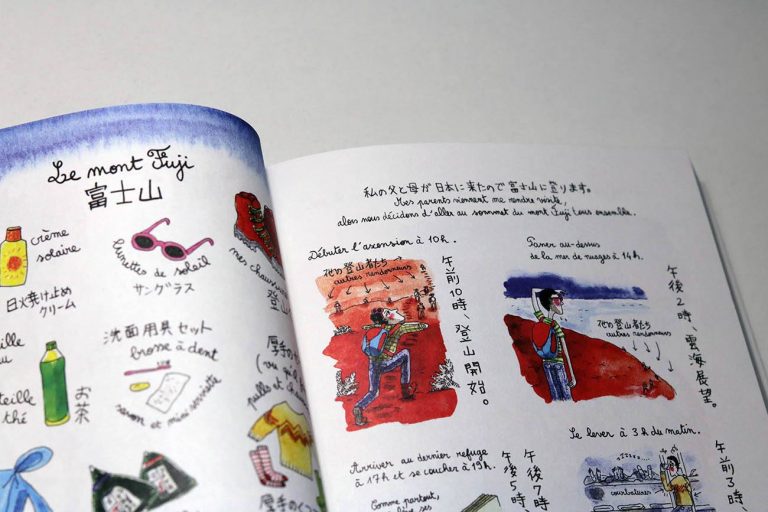 Le mont Fuji
富士山
crème
solaire
日焼け止め
クリーム
lunettes de soleil
サングラス
mes chaussures
登山
洗面用具セット
brosse à dent
savon et mini serviette
お茶
thé
厚手の
pulls et
厚手のくつ
私の父と母が日本に来たので富士山に登ります。
Mes parents viennent me rendre visite,
alors nous décidons d'aller au sommet du mont Fuji tous ensemble.
Débuter l'ascension à 10h.
他の登山者たち
autres randonneurs
午前10時、登山開始。
Passer au-dessus
de la mer de nuages à 14h.
他の登山者たち
autres randonneurs
午後2時、雲海展望。
Arriver au dernier refuge
à 17h et se coucher à 19h.
Comme partout,
午後7時
午後5時、
Se lever à 3h du matin.
courbatures
午前3時、